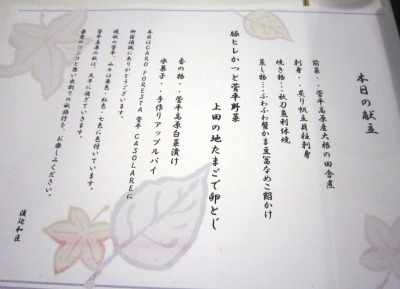 本日の献立
前菜・・菅平高原産大根の田舎煮
刺身・・炙り帆立貝柱刺身
焼き物・・秋刀魚利休焼
蒸し物・・ふわふわ蟹かま豆富なめこ餡かけ
豚ヒレかつと菅平野菜
上田の地たまごで卵とじ
香の物・・菅平高原白菜漬け
水菓子・・手作りアップルパイ
本日はCARO FORESTA 菅平 CASOLAREに
御宿泊誠にありがとうございます。
晩秋の菅平、山々は黄色、紅色、七色に色付いています。
菅平高原の秋は、足早に過ぎていきます。
最愛のワンコと思い出創りの秋旅行を、お楽しみください。
渡辺和臣